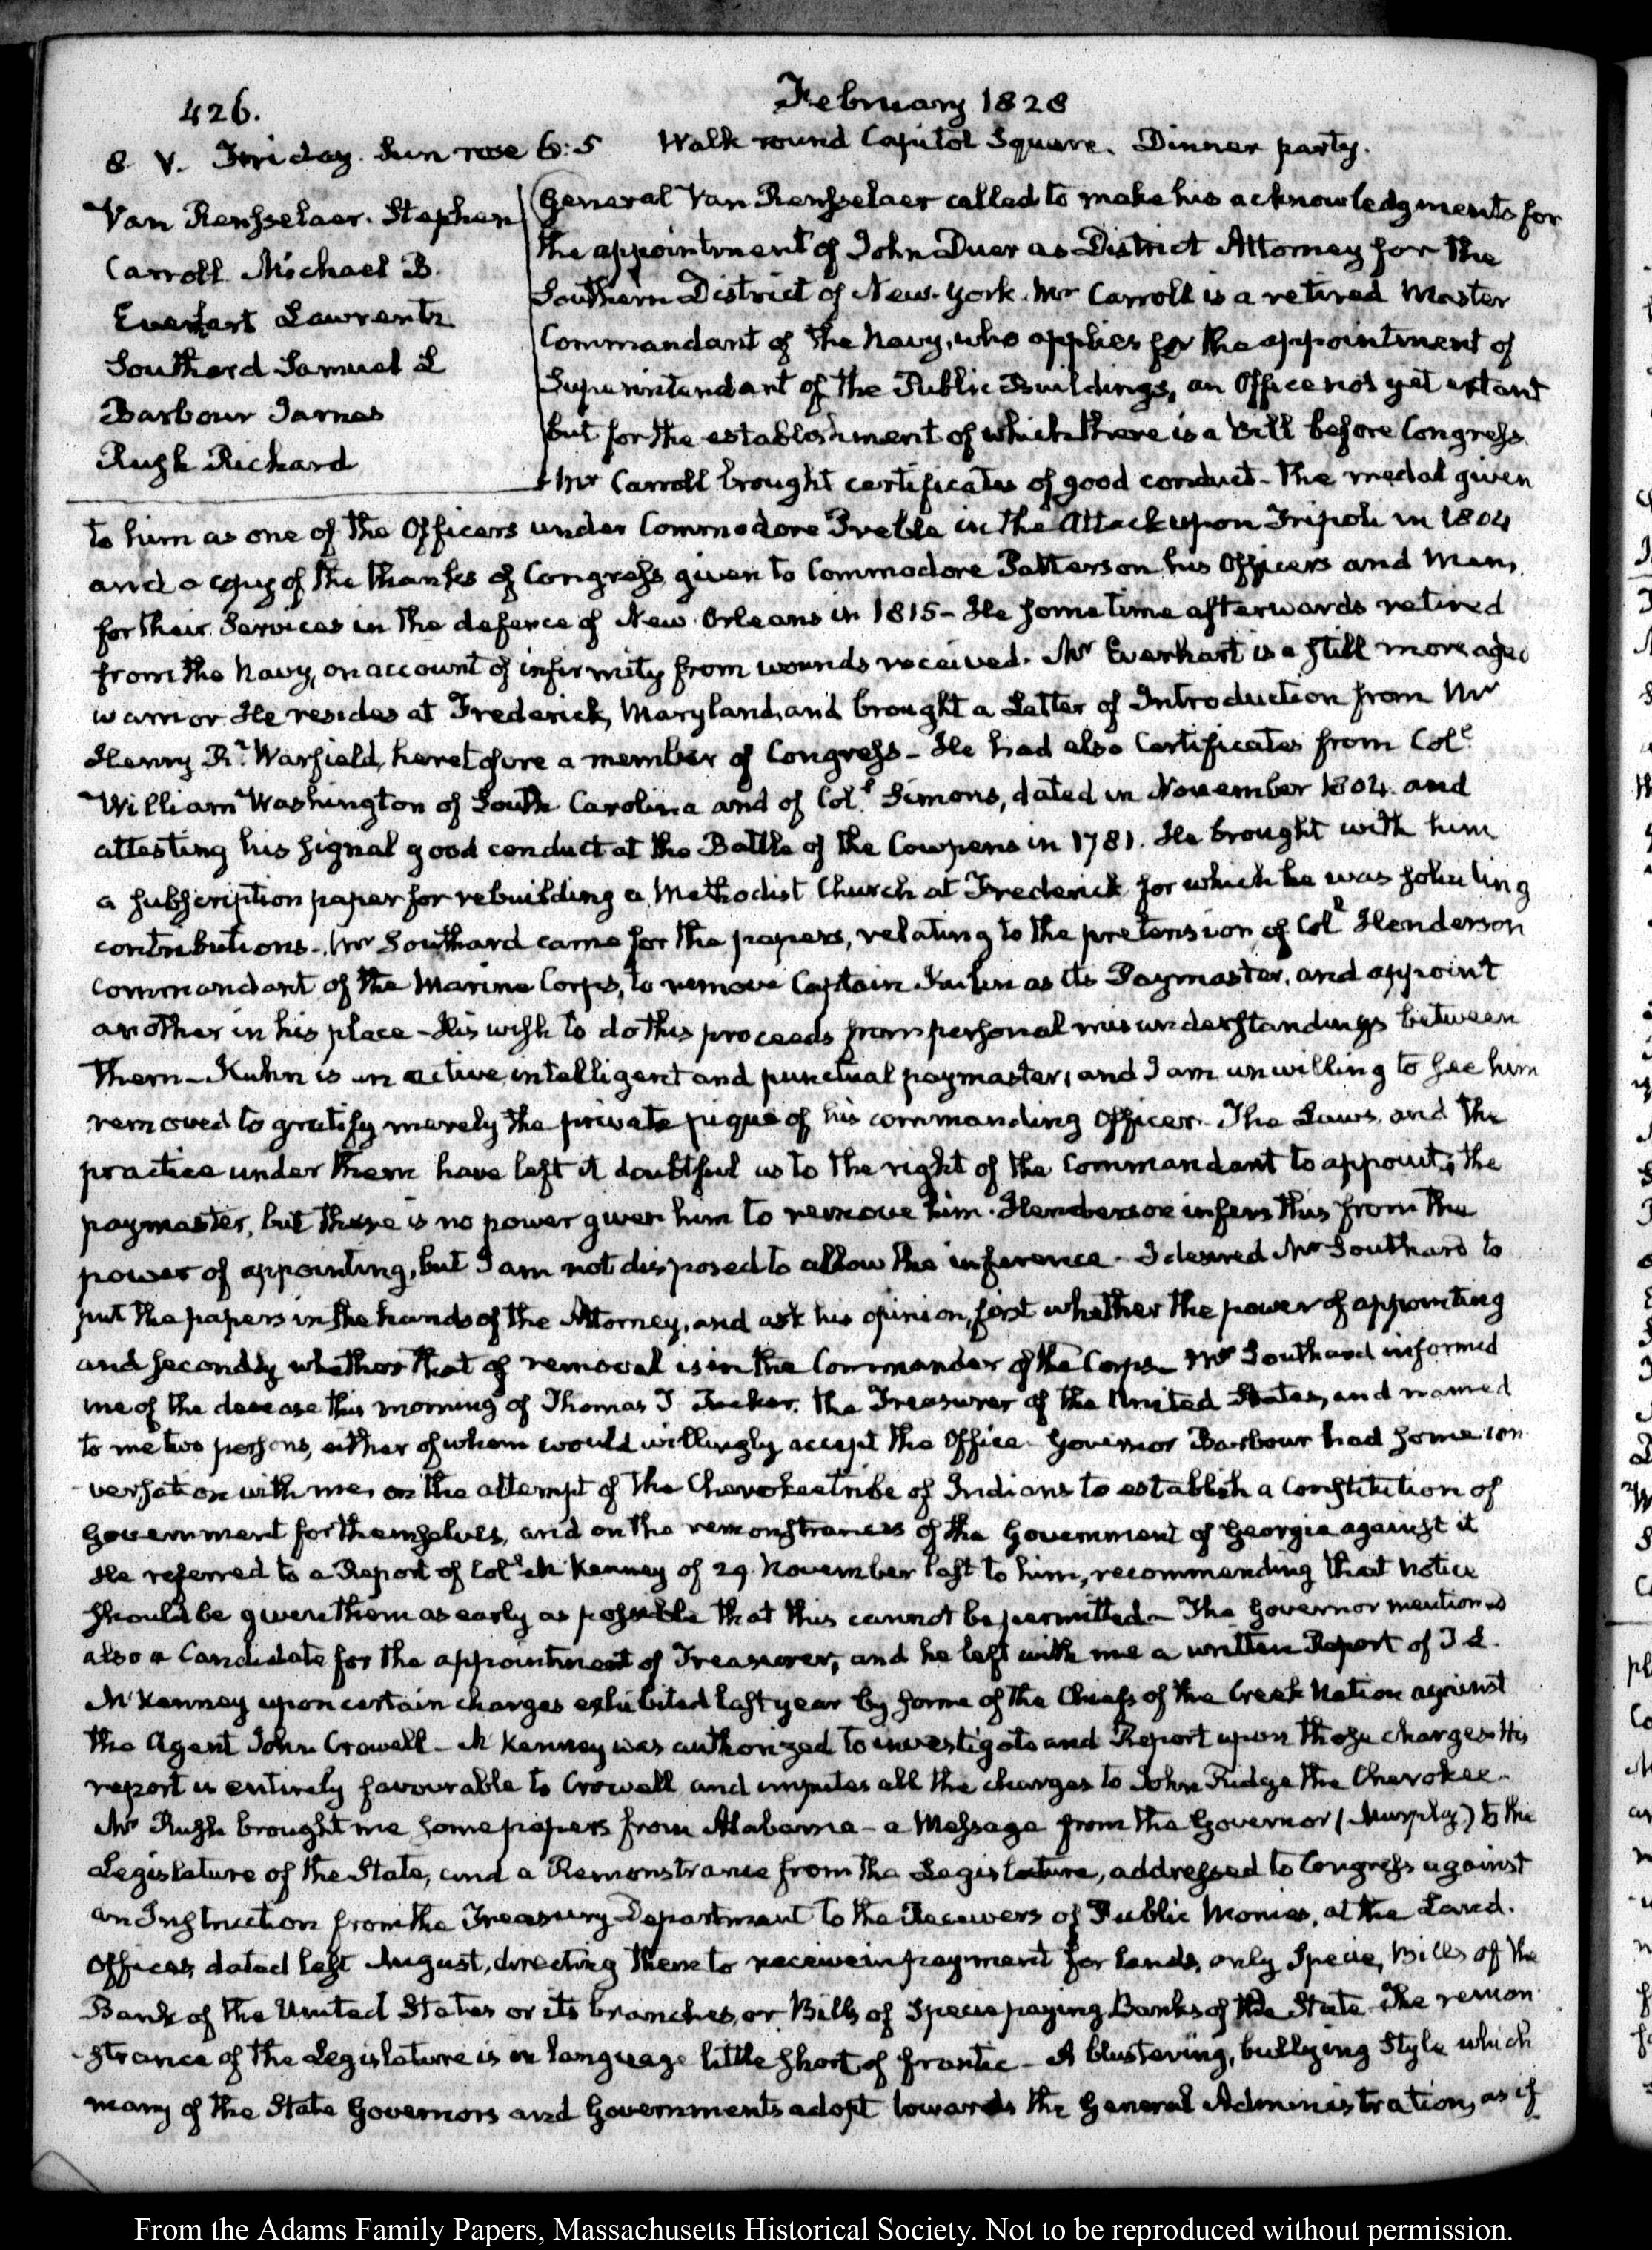 426.
February 1828
8. V. Friday. Sun rose 6:5 Walk round Capitol Square. Dinner party.
Van Rensselaer. Stephen
Carroll Michael B.
Everhart Lawrence
Southard Samuel L
Barbour James
Rush Richard
General Van Rensselaer called to make his acknowledgments for
the appointment of John Duer as District Attorney for the
Southern District of New-York. Mr Carroll is a retired Master
Commandant of the Navy, who applies for the appointment of
Superintendant of the Public Buildings, an Office not yet extant
but for the establishment of which there is a Bill before Congress.
Mr Carroll brought certificates of good conduct - The medal given
to him as one of the Officers under Commodore Preble in the Attack upon Tripoli in 1804
and a copy of the thanks of Congress given to Commodore Patterson his Officers and Men,
for their Services in the defence of New Orleans in 1815 - He some time afterwards retired
from the Navy, on account of infirmity from wounds received. Mr Everhart is a still more aged
warrior He resides at Frederick, Maryland, and brought a Letter of Introduction from Mr
Henry R. Warfield, heretofore a member of Congress - He had also Certificates from Coll.
William Washington of South Carolina and of Coll. Simons, dated in November 1804. and
attesting his signal good conduct at the Battle of the Cowpens in 1781. He brought with him
a subscription paper for rebuilding a Methodist Church at Frederick for which he was soliciting
contributions - Mr Southard came for the papers, relating to the pretension of Coll Henderson
commandant of the Marine Corps, to remove Captain Kuhn as its Paymaster, and appoint
another in his place - His wish to do this proceeds from personal misunderstandings between
them - Kuhn is an active intelligent and punctual paymaster, and I am unwilling to see him
removed to gratify merely the private pique of his commanding Officer. The Laws, and the
practice under them have left it doubtful as to the right of the Commandant to appoint the
paymaster, but there is no power given him to remove him. Henderson infers this from the
power of appointing, but I am not disposed to allow the inference - I desired Mr Southard to
put the papers in the hands of the Attorney, and ask his opinion, first whether the power of appointing
and secondly whether that of removal is in the Commander of the Corps - Mr Southard informed
me of the decease this morning of Thomas T Tucker. the Treasurer of the United States, and named
to me two persons, either of whom would willingly accept the Office. Governor Barbour had some con
versation with me, on the attempt of the Cherokee tribe of Indians to establish a Constitution of
Government for themselves, and on the remonstrances of the Government of Georgia against it
He referred to a Report of Coll McKenney of 29. November last to him, recommending that notice
should be given them as early as possible that this cannot be permitted - The Governor mentioned
also a Candidate for the appointment of Treasurer, and he left with me a written Report of T. L.
McKenney upon certain charges exhibited last year by some of the Chiefs of the Creek Nation against
the Agent John Crowell - McKenney was authorized to investigate and Report upon those charges. His
report is entirely favourable to Crowell and imputes all the charges to John Ridge the Cherokee -
Mr Rush brought me some papers from Alabama - a Message from the Governor (Murphy) to the
Legislature of the State, and a Remonstrance from the Legislature, addressed to Congress against
an Instruction from the Treasury Department to the Receivers of Public Monies, at the Land.
Offices, dated last August, directing them to receive in payment for lands, only Specie, Bills of the
Bank of the United States or its branches, or Bills of Specie paying Banks of the State. The remon
strance of the Legislature is in language little short of frantic - A blustering, bullying Style which
many of the State Governors and Governments adopt towards the General Administration, as if
From the Adams Family Papers, Massachusetts Historical Society. Not to be reproduced without permission.